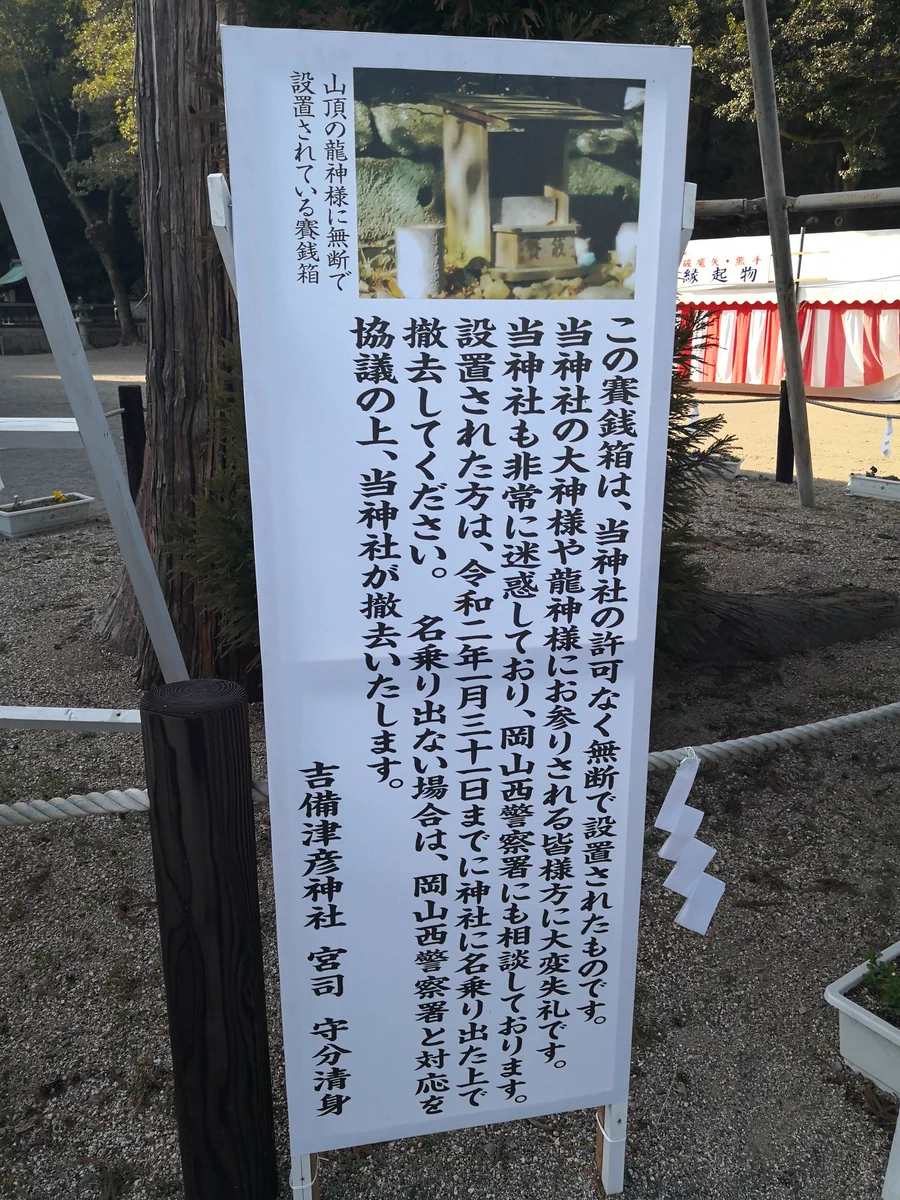 山頂の龍神様に無断で
設置されている賽銭箱
この賽銭箱は、当神社の許可なく無断で設置されたものです。
当神社の大神様や龍神様にお参りされる皆様方に大変失礼です。
当神社も非常に迷惑しており、岡山西警察署にも相談しております。
設置された方は、令和二年一月三十一日までに神社に名乗り出た上で
撤去してください。　名乗り出ない場合は、岡山西警察署と対応を
協議の上、当神社が撤去いたします。
吉備津彦神社　宮司　守分清身
破魔矢・熊手
縁起物